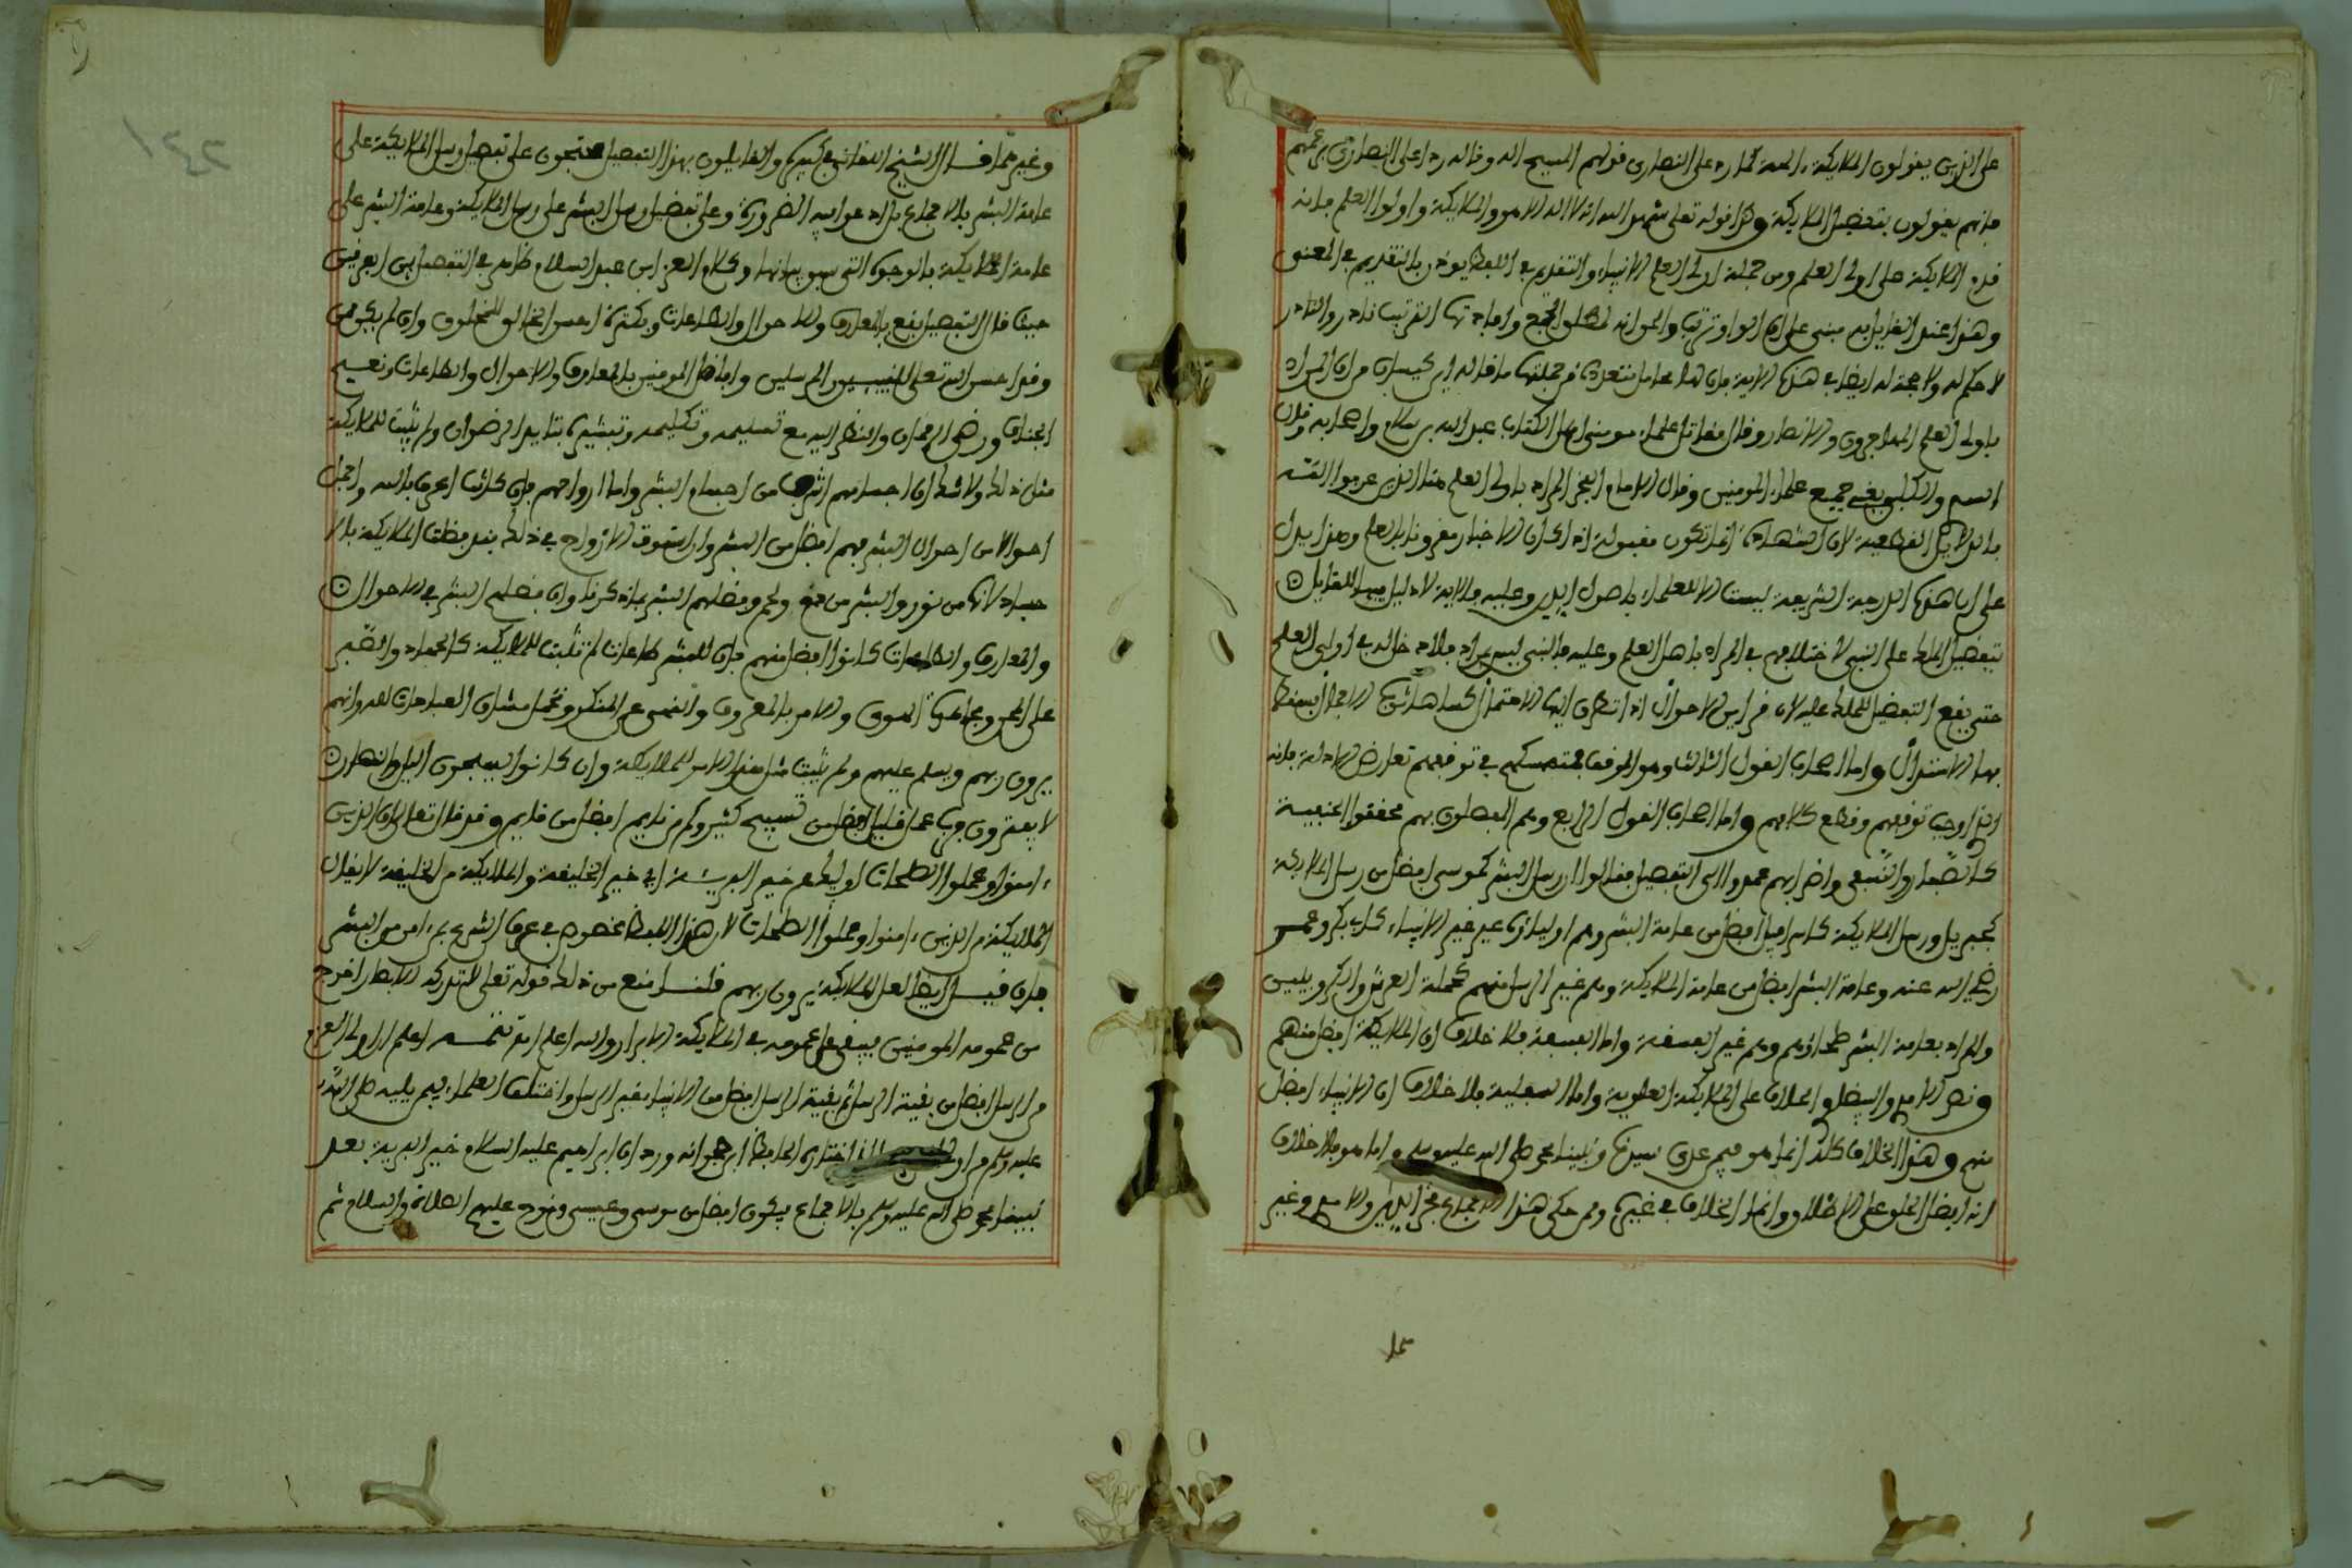 على الذين يقولون الملائكة ءالهة كما رد على النصارى قولهم المسيح اله وقاله ردا على النصارى بزعمهم
فإنهم يقولون بتفضيل الملائكة وكذا قوله تعلى شهد الله انه لا اله الا هو والملائكة واولوا العلم فإنه
قدم الملائكة على اولى العلم ومن جملة اولى العلم الانبياء والتقديم في اللفظ يوذن بالتقديم في المعنى
وهذا عند القايل به مبنى على ان الواو ترتب والحق انه لمطلق الجمع وافادتها الترتيب نادر والنادر
لا حكم له ولا حجة له ايضا في هذه الاية فإن لها محامل متعددة فمن جملتها ما قاله ابن كيسان من ان المراد
باولى العلم المهاجرون والانصار وقال مقاتل علماء مومنى اهل الكتاب عبد الله بن سلام واصحابه وقال
السدي والكلبي يعني جميع علماء المومنين وقال الامام الفخر المراد باولى العلم هنا الذين عرفوا الله
بالدلايل القطعية لان الشهادة انما تكون مقبولة اذا كان الاخبار مقرونا بالعلم وهذا يدل
على ان هذه الدرجة الشريفة ليست الا للعلماء باصول الدين وعليه فالاية لا دليل فيها للقايل
بتفضيل الملك على النبي لاختلافهم في المراد باهل العلم وعليه فالنبي ليس بمراد فلا دخل له في اولى العلم
حتى يقع التفضيل للملك عليه لان قراين الاحوال اذا تطرق اليها الاحتمال كساها ثوب الاجمال فسقط
بها الاستدلال واما اصحاب القول الثالث وهو الوقف فمتمسكهم في توقفهم تعارض الادلة فإنه
الذي اوجب توقفهم وقطع كلامهم واما اصحاب القول الرابع وهم المفصلون بهم محققوا الحنفية
كالصفار والنسفي واضرابهم عمدوا الى التفضيل فقالوا ان رسل البشر كموسى افضل من رسل الملائكة
كجبريل ورسل الملائكة كاسرافيل افضل من عامة البشر وهم اولياؤه غير الانبياء كابى بكر وعمر
رضي الله عنه وعامة البشر افضل من عامة الملائكة وهم غير الرسل منهم كحملة العرش والكروبيين
والمراد بعامة البشر صلحاؤهم وهم غير الفسقة واما الفسقة فلا خلاف ان الملائكة افضل منهم
ونص الامام والبيضاوي الخلاف على الملائكة العلوية واما السفلية فلا خلاف ان الانبياء افضل
منهم وهذا الخلاف كله انما هو فيمن عدى سيدنا ونبينا محمد صلى الله عليه وسلم واما هو فلا خلاف
انه افضل الخلق على الاطلاق وانما الخلاف في غيره وممن حكى هذا الاجماع فخر الدين والامام وغير
عدا
وغيرهما قال الشيخ اللقاني في كبيره والقايلون بهذا التفصيل يحتجون على تفضيل رسل الملائكة على
عامة البشر بالاجماع بل ادعوا فيه الضرورة وعلى تفضيل رسل البشر على رسل الملائكة وعامة البشر على
عامة الملائكة بالوجوه التى سبق بيانها وكلام العز ابن عبد السلام ظاهر في التفصيل بين الفريقين
حيث قال التفضيل يقع بالمعارف والاحوال والطاعات وبكثرة احسن الخالق للمخلوق وان لم يكن من
وقد احسن الله تعلى للنبيين المرسلين وافاضل المومنين بالمعارف والاحوال والطاعات ونعيم
الجنان ورضى الرحمان والنظر اليه مع تسليمه وتكليمه وتبشيره بتأبيد الرضوان ولم يثبت للملائكة
مثل ذلك ولا شك ان اجسامهم اشرف من اجسام البشر واما ارواحهم فإن كانت اعرف بالله واجمل
احوالا من احوال البشر فهم افضل من البشر وان استوت الارواح في ذلك فقد فضلت الملائكة بالا
جساد لانها من نور والبشر من دم ولحم وفضلهم البشر بما ذكرنا وان فضلهم البشر في الاحوال
والمعارف والطاعات كانوا افضل منهم فإن للبشر طاعات لم تثبت للملائكة كالجهاد والصبر
على المحن ومجاهدة الهوى والامر بالمعروف والنهي عن المنكر وتحمل مشاق العبادات لله وانهم
يرون ربهم ويسلم عليهم ولم يثبت مثل هذا الامر للملائكة وان كانوا يسبحون اليل والنهار
لا يفترون فرب عمل قليل افضل من تسبيح كثير وكم من نايم افضل من قايم وقد قال تعلى ان الذين
ءامنوا وعملوا الصلحات اوليك هم خير البريئة اي خير الخليقة والملائكة من الخليقة لا يقال
الملائكة من الذين ءامنوا وعملوا الصلحات لان هذا اللفظ مخصوص في عرف الشرع بمن ءامن من البشر
فإن قيل ايضا لعل الملائكة يرون ربهم قلنا منع من ذلك قوله تعلى لا تدركه الابصار اخرج
من عمومه المومنين فيبقى على عمومه في الملائكة الابرار والله اعلم انتهى تتمة اعلم ان اولى العزم
من الرسل افضل من بقية الرسل ثم بقية الرسل افضل من الانبياء غير الرسل واختلف العلماء فيمن يليه صلى الله
عليه وسلم من اولى العزم الذى اختاره الحافظ ابن حجر انه ورد ان ابراهيم عليه السلام خير البرية بعد
نبينا محمد صلى الله عليه وسلم بالاجماع يكون افضل من موسى وعيسى ونوح عليهم الصلاة والسلام ثم